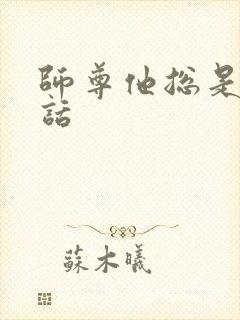 師尊他總是
話
蘇木曦